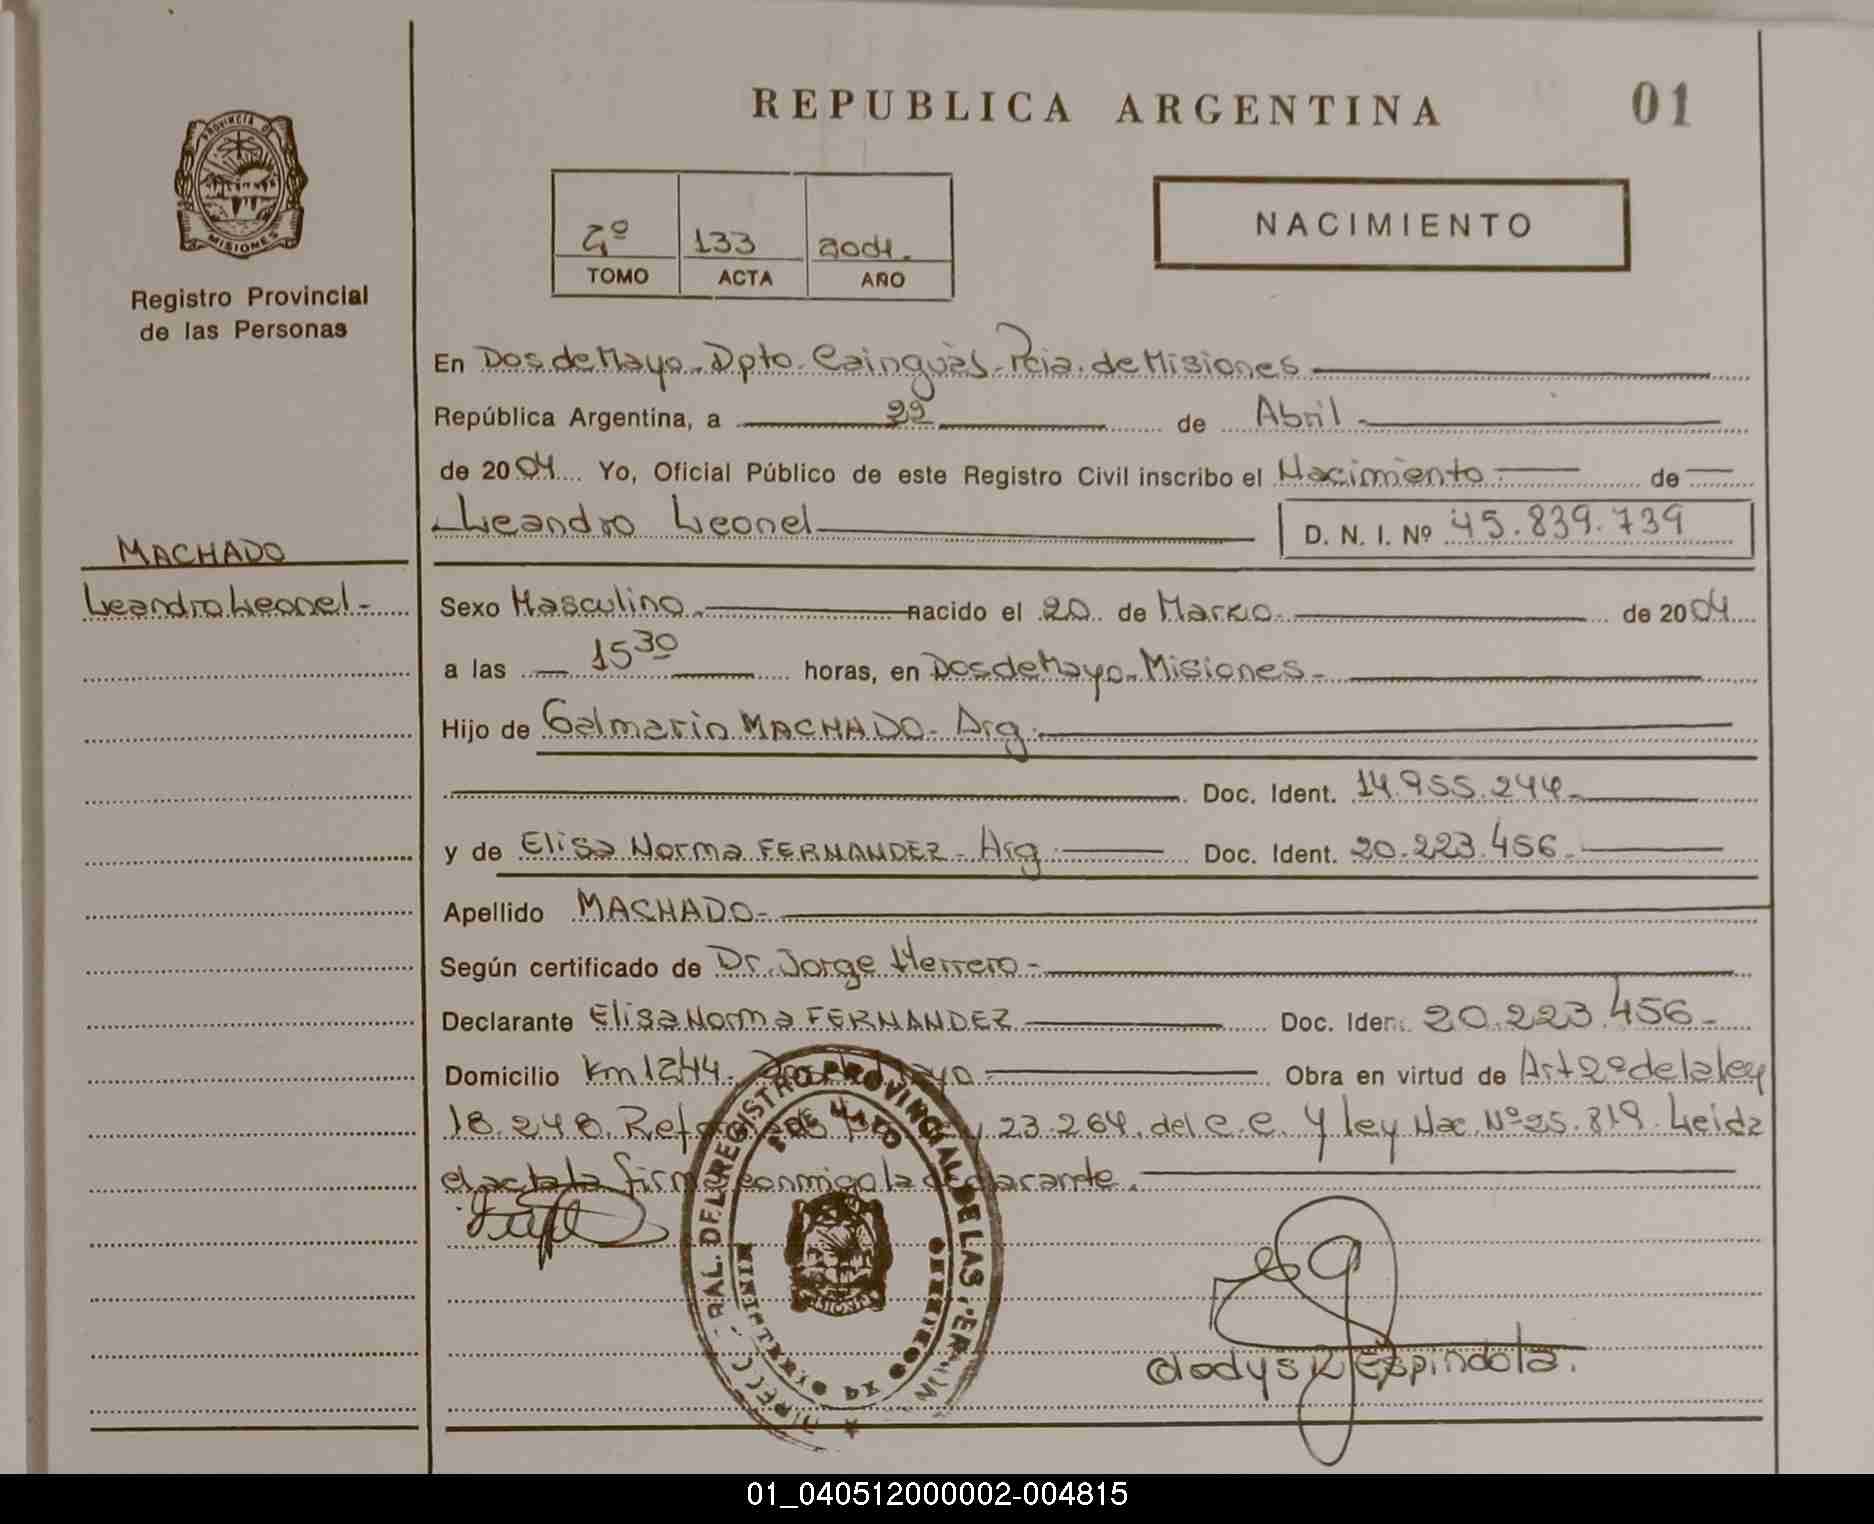 REPUBLICA ARGENTINA
01
PROVINCIA DE
MISIONES
Registro Provincial
de las Personas
2º 133 2004.
TOMO ACTA AÑO
NACIMIENTO
En Dos de Mayo - Dpto. Cainguàs - Pcia. de Misiones
República Argentina, a 22 de Abril
de 2004 Yo, Oficial Público de este Registro Civil inscribo el Nacimiento de
Leandro Leonel D. N. I. Nº 45.839.739
MACHADO
Leandro Leonel -
Sexo Masculino nacido el 20 de Marzo de 2004
a las 15 30 horas, en Dos de Mayo - Misiones -
Hijo de Galmarin MACHADO - Arg.
Doc. Ident. 14.955.244 -
y de Elisa Norma FERNANDEZ - Arg. Doc. Ident. 20.223.456 -
Apellido MACHADO -
Según certificado de Dr. Jorge Herrero -
Declarante Elisa Norma FERNANDEZ Doc. Iden. 20.223.456 -
Domicilio Km 1244 - Obra en virtud de Art 2º de la ley
18.248. 23.264. del C.C. y ley Nac Nº 25.819. Leida
el acta la firma conmigo la declarante.
REGISTRO PROVINCIAL DE LAS
2 DE MAYO
MINISTERIO DE
MISIONES
Gladys R Espindola.
01_040512000002-004815